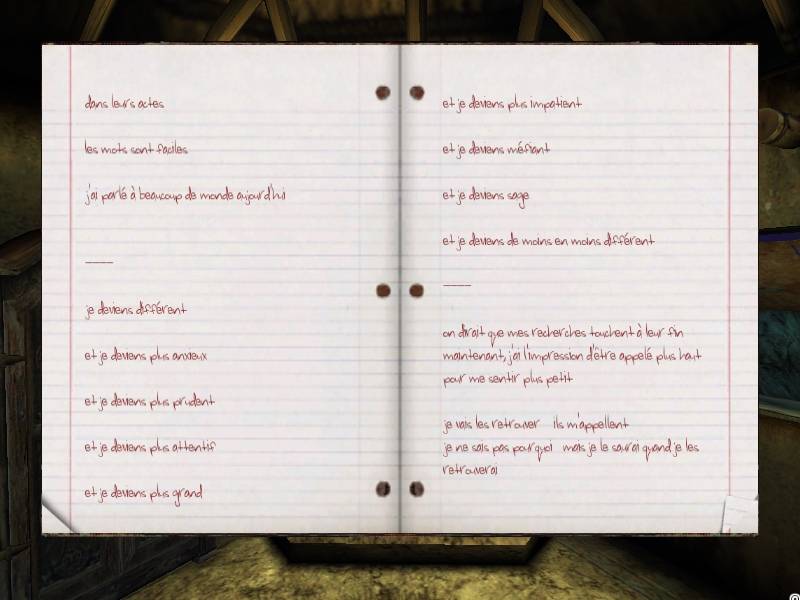 dans leurs actes
les mots sont faciles
j'ai parlé à beaucoup de monde aujourd'hui
____
je deviens différent
et je deviens plus anxieux
et je deviens plus prudent
et je deviens plus attentif
et je deviens plus grand
et je deviens plus impatient
et je deviens méfiant
et je deviens sage
et je deviens de moins en moins différent
____
on dirait que mes recherches touchent à leur fin
maintenant, j'ai l'impression d'être appelé plus haut
pour me sentir plus petit
je vais les retrouver ils m'appellent
je ne sais pas pourquoi mais je le saurai quand je les
retrouverai